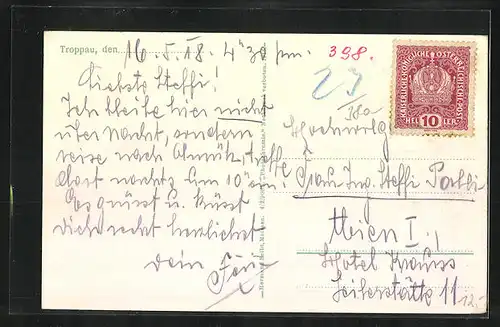 Troppau, den
16. 5. 18. 4 30 pm.
Liebste Steffi!
Ich bleibe hier nicht
über Nacht, sondern
reise nach Olmütz, treffe
dort nachts um 10
Es grüsst u. küsst
dich recht herzlichst
dein
398.
23
KAISERLICHE KÖNIGLICHE ÖSTERREICHISCHE POST
HELLER 10
Hochwolg
Frau Ing. Steffi
Wien I.,
Hotel Krauss
Seilerstätte 11
125